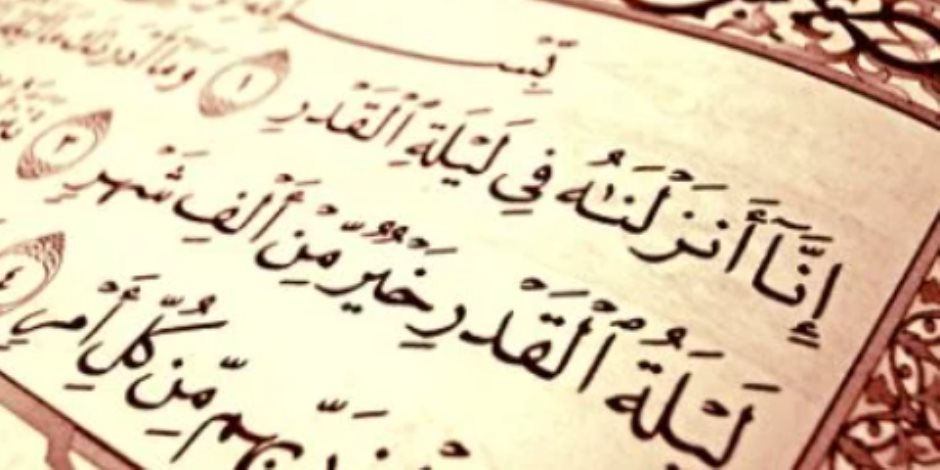 بِسْـ
إِنَّآ أَنزَلْنَـٰهُ فِى لَيْلَةِ ٱلْقَدْرِ ١ وَمَآ أَدْرَىٰكَ
لَيْلَةُ ٱلْقَدْرِ خَيْرٌ مِّنْ أَلْفِ شَهْرٍ ٣
رَبِّهِم مِّن كُلِّ أَمْرٍ ٤